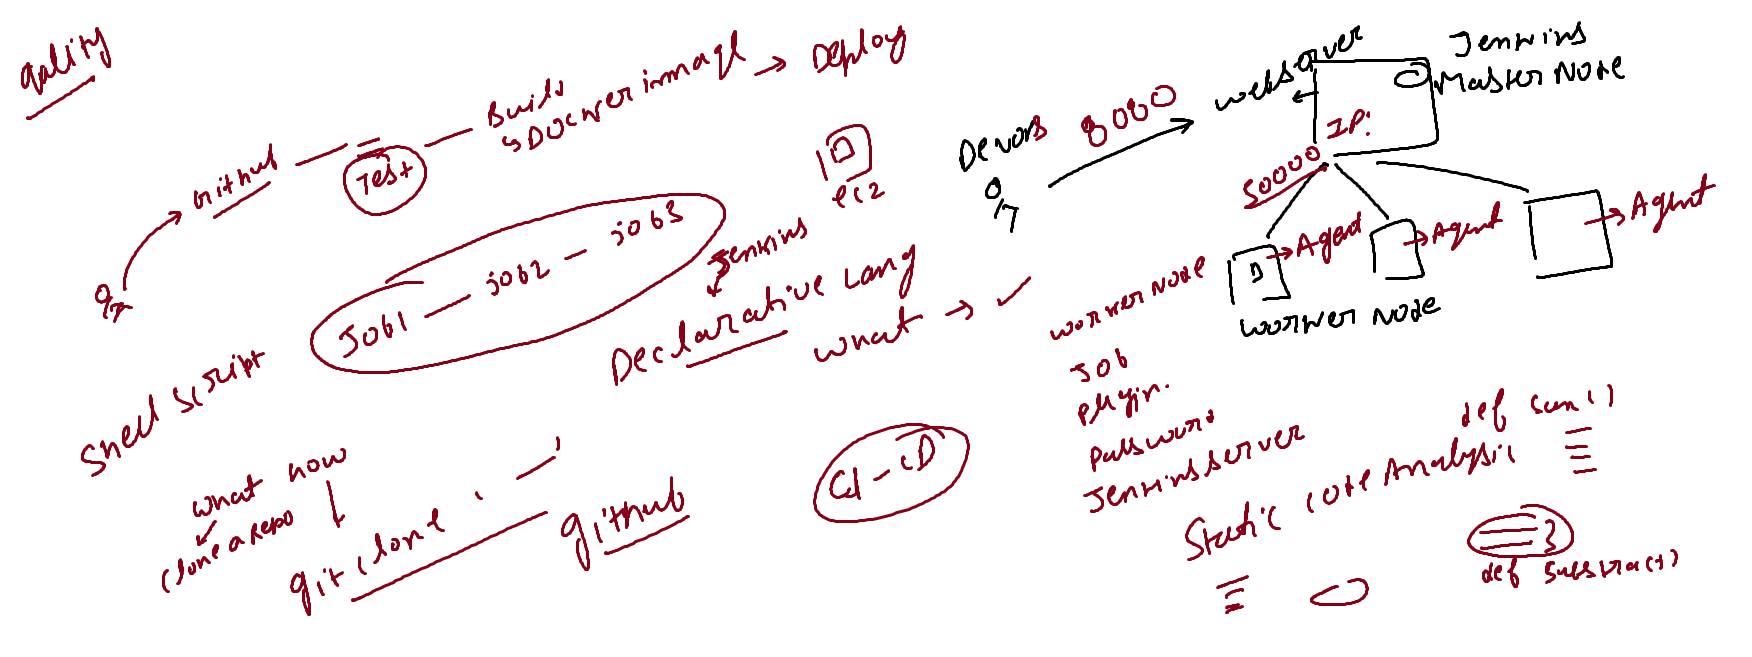 Quality
Github
Test
Build
Docker image
→ Deploy
ec2
Job1 - job2 - job3
Shell script
Jenkins
Declarative Lang
what → ✓
what how
clone a repo
git clone
github
CI - CD
Devops 8080
webserver
Jenkins
Master Node
IP:
50000
Agent
Agent
Agent
worker Node
Worker Node
Job
Plugin.
Password
Jenkins server
Static code Analysis
def sum()
def substract()